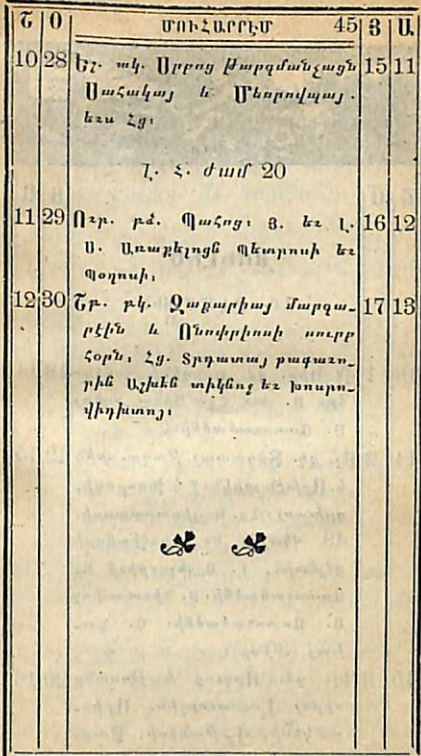 Շ Օ ՄՈՒՀԱՐՐԷՄ 45 Յ Ա
10 28 Եշ. ակ. Սրբոց Թարգմանչացն 15 11
Սահակայ և Մեսրովպայ.
եւս Հց։
Լ. Հ. ժամ 20
11 29 Ուր. բձ. Պահոց։ Յ. եւ Լ. 16 12
Ս. Առաքելոցն Պետրոսի եւ
Պօղոսի։
12 30 Շբ. բկ. Զաքարիայ մարգա-
րէին և Ոնոփրիոսի սուրբ 17 13
Հօրն։ Հց. Տրդատայ թագաւո-
րին Աշխեն տիկնոջ եւ խոսրո-
վիդխտոյ։